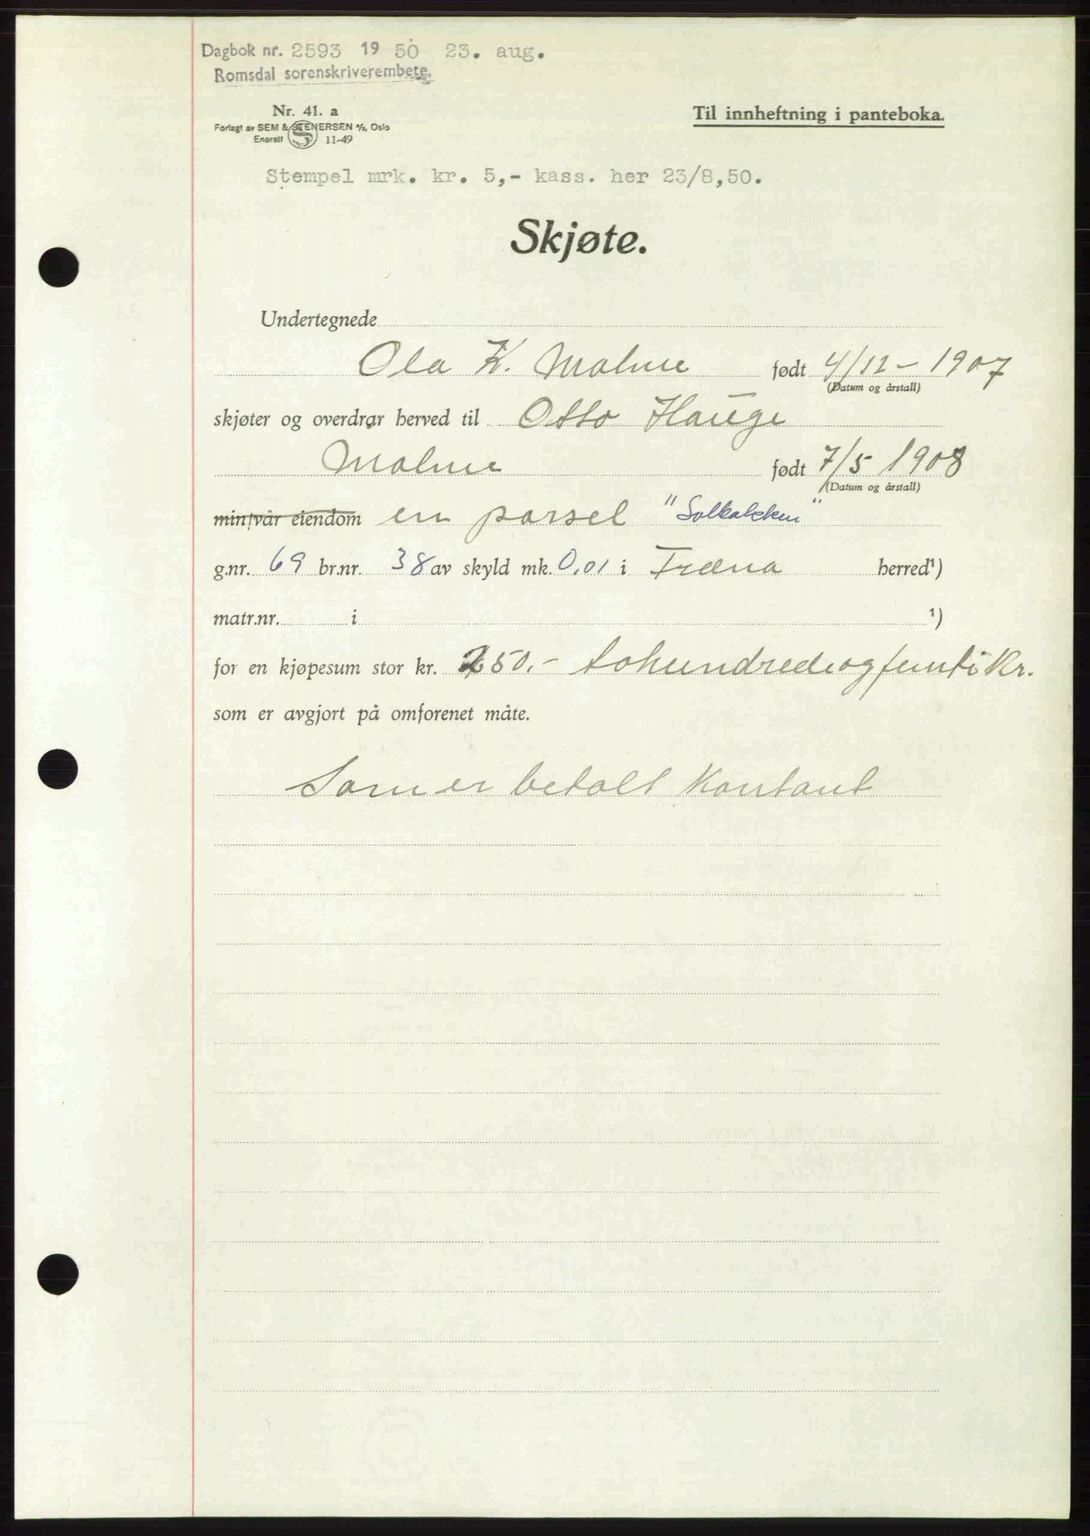 Dagbok nr. 2593 1950 23. aug.
Romsdal sorenskriverembete.
Nr. 41. a
Forlagt av SEM & STENERSEN A/S, Oslo
Enerett 11-49
Til innheftning i panteboka.
Stempel mrk. kr. 5,- kass. her 23/8,50.
Skjøte.
Undertegnede
Ola K. Malme født 4/12 - 1907
(Datum og årstall)
skjøter og overdrar herved til Otto Hauge
Malme født 7/5 1908
(Datum og årstall)
min/vår eiendom en parsel "Solbakken"
g.nr. 69 br.nr. 38 av skyld mk. 0,01 i Fræna herred¹)
matr.nr. i ¹)
for en kjøpesum stor kr. 250.- tohundredeogfemti Kr.
som er avgjort på omforenet måte.
Som er betalt Kontant